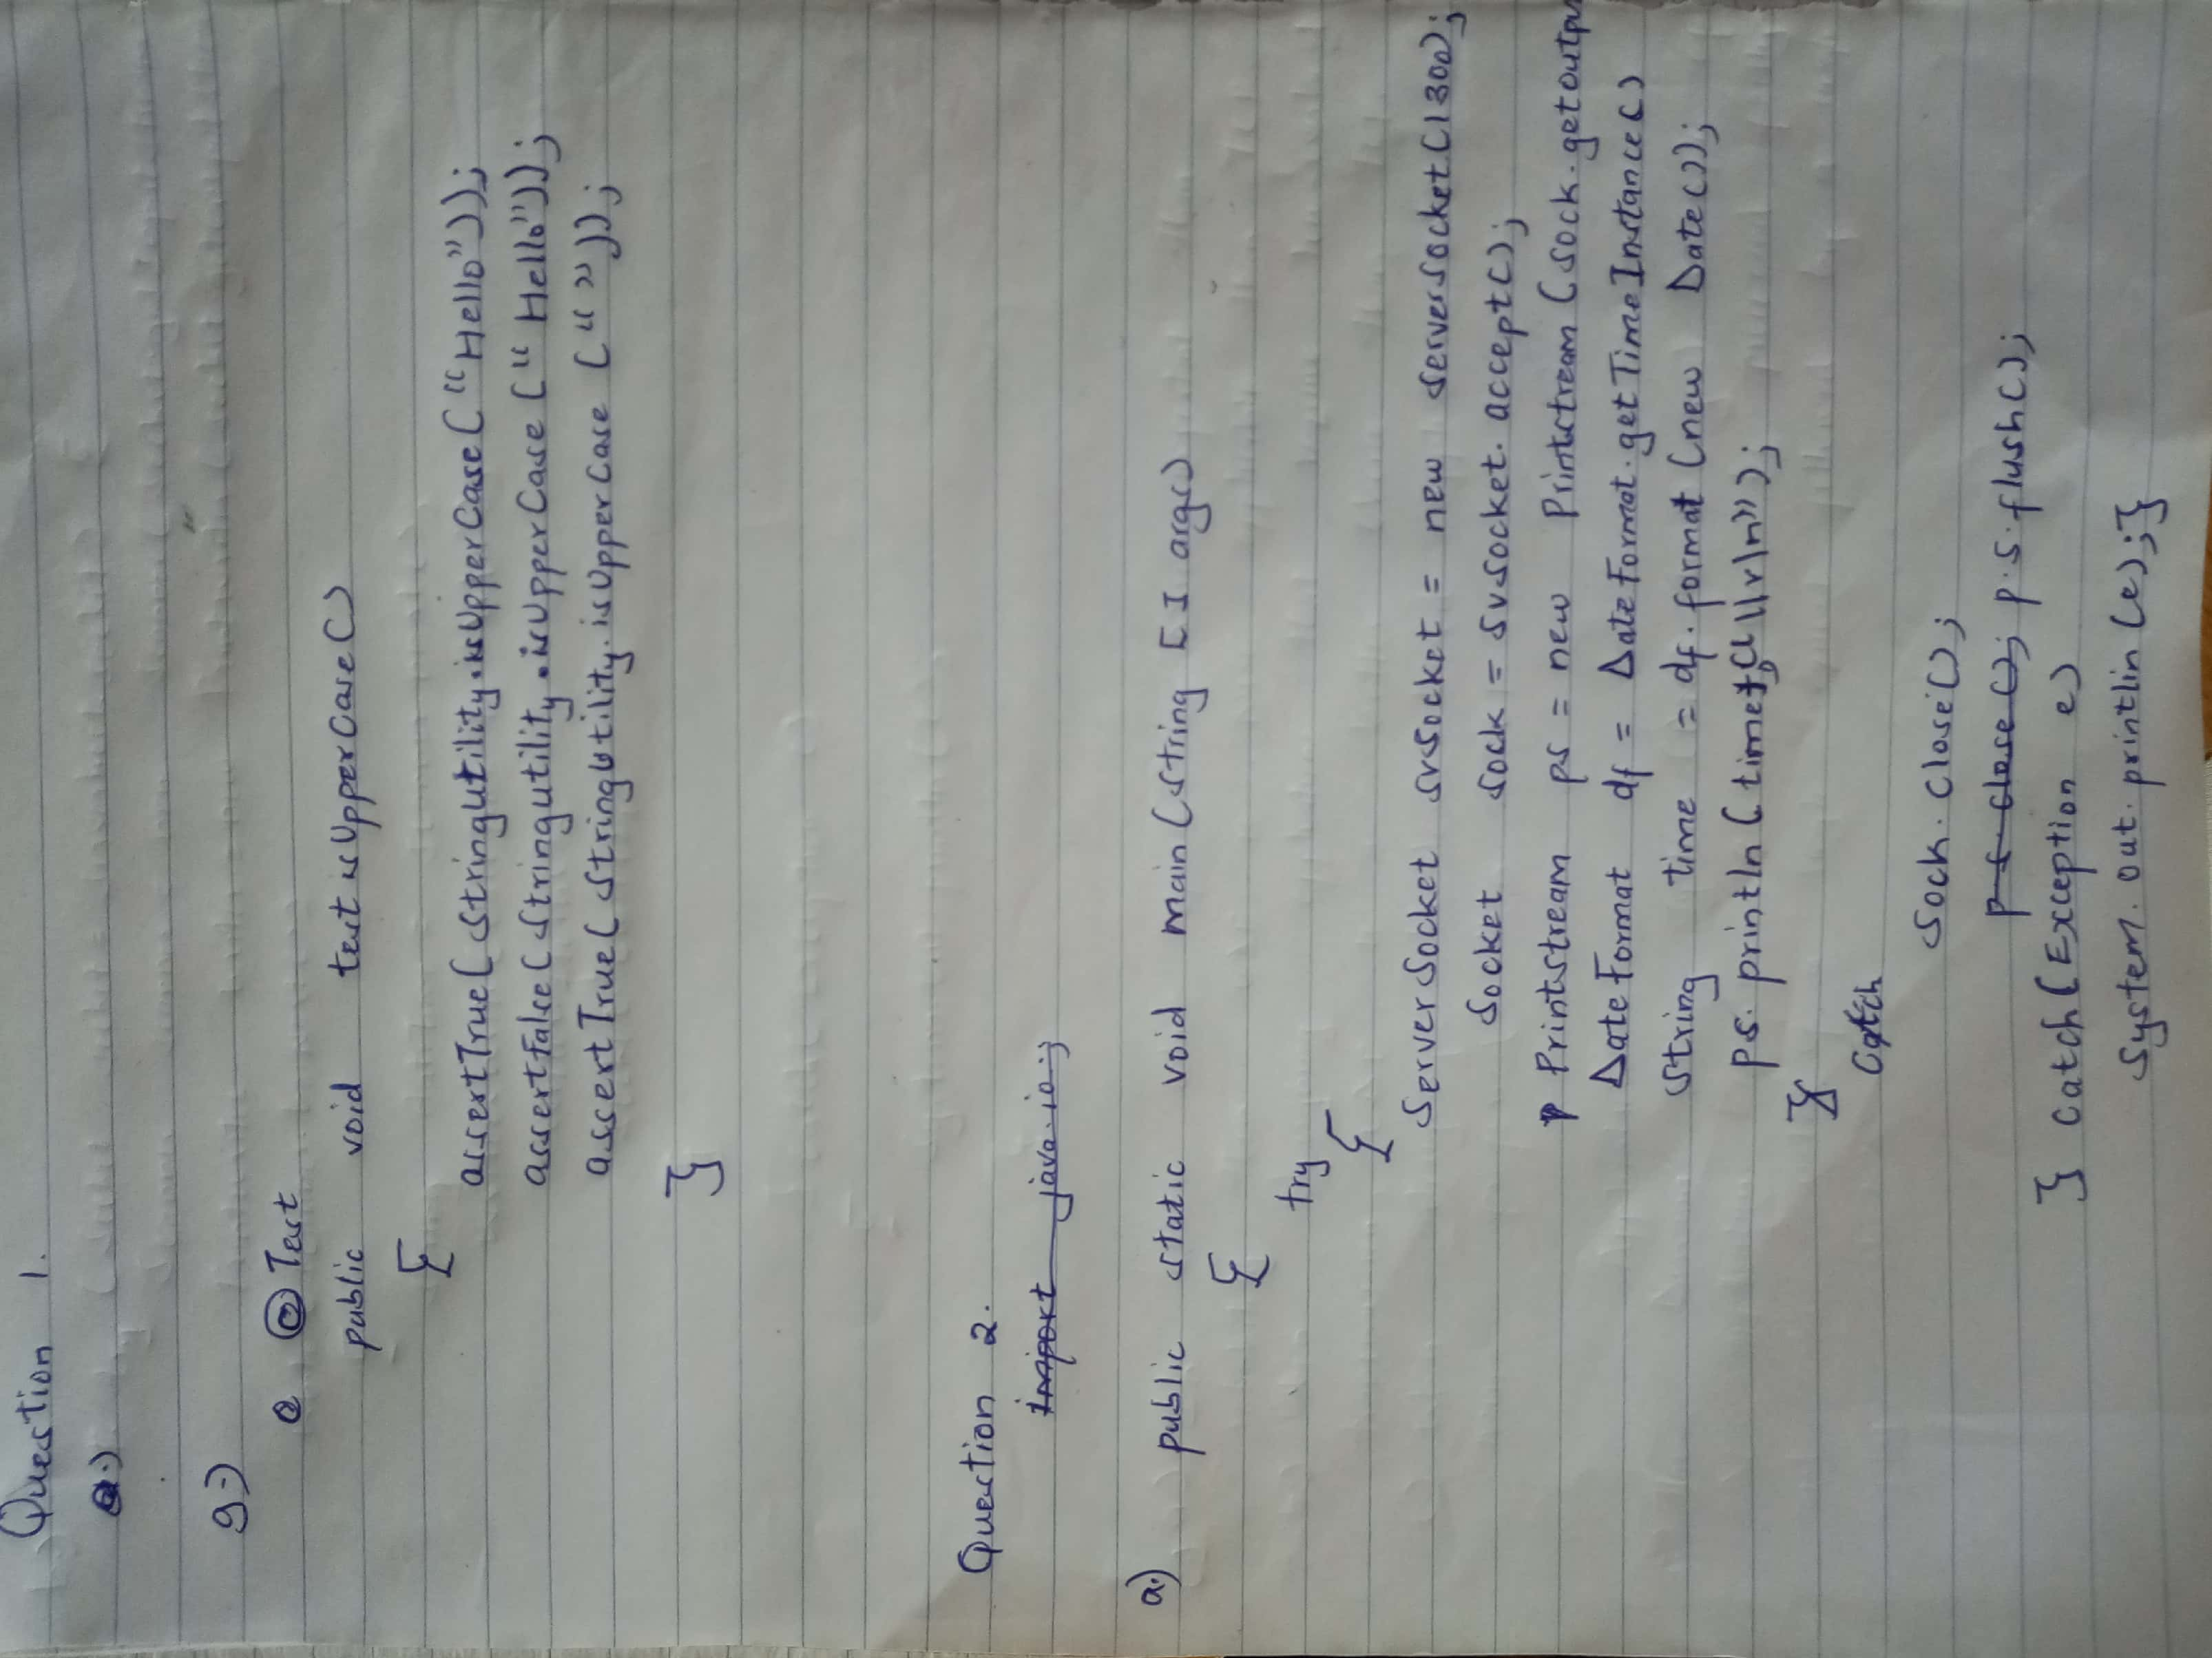 Question 1.
a.)
g.)
@ Test
public void testisUpperCase()
{
assertTrue(StringUtility.isUpperCase("Hello"));
assertFalse(Stringutility.isUpperCase(" Hello"));
assertTrue(StringUtility.isUpperCase (" "));
}
Question 2.
import java.io;
a.) public static void main(String [] args)
{
try
{
ServerSocket svsocket = new ServerSocket(1300);
Socket sock = svsocket.accept();
Printstream ps = new Printstream (sock.getoutpu
DateFormat df = DateFormat.getTimeInstance()
String time = df.format (new Date());
ps.println(time+"\r\n");
}
catch
sock.close();
ps.close(); p.s.flush();
} catch (Exception e)
System.out.println(e);}